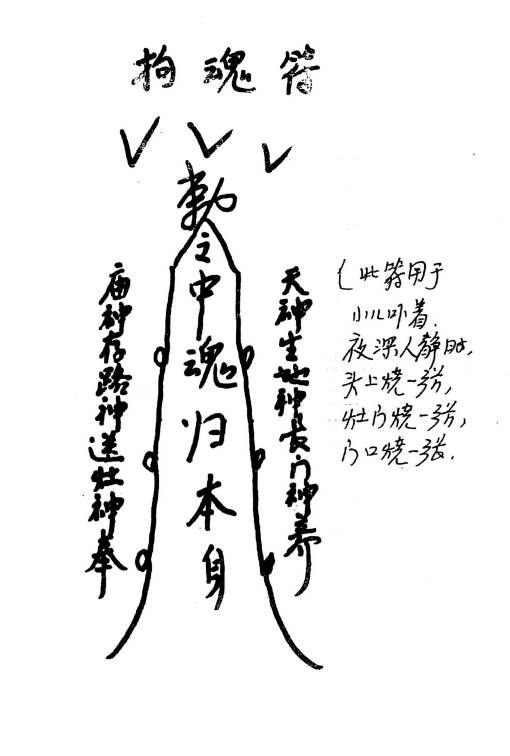 拘魂符
勅之中魂归本身
天神生地神长门神养
庙神存路神送灶神奉
(此符用于
小儿吓着.
夜深人静时,
头上烧一张,
灶门烧一张,
门口烧一张.